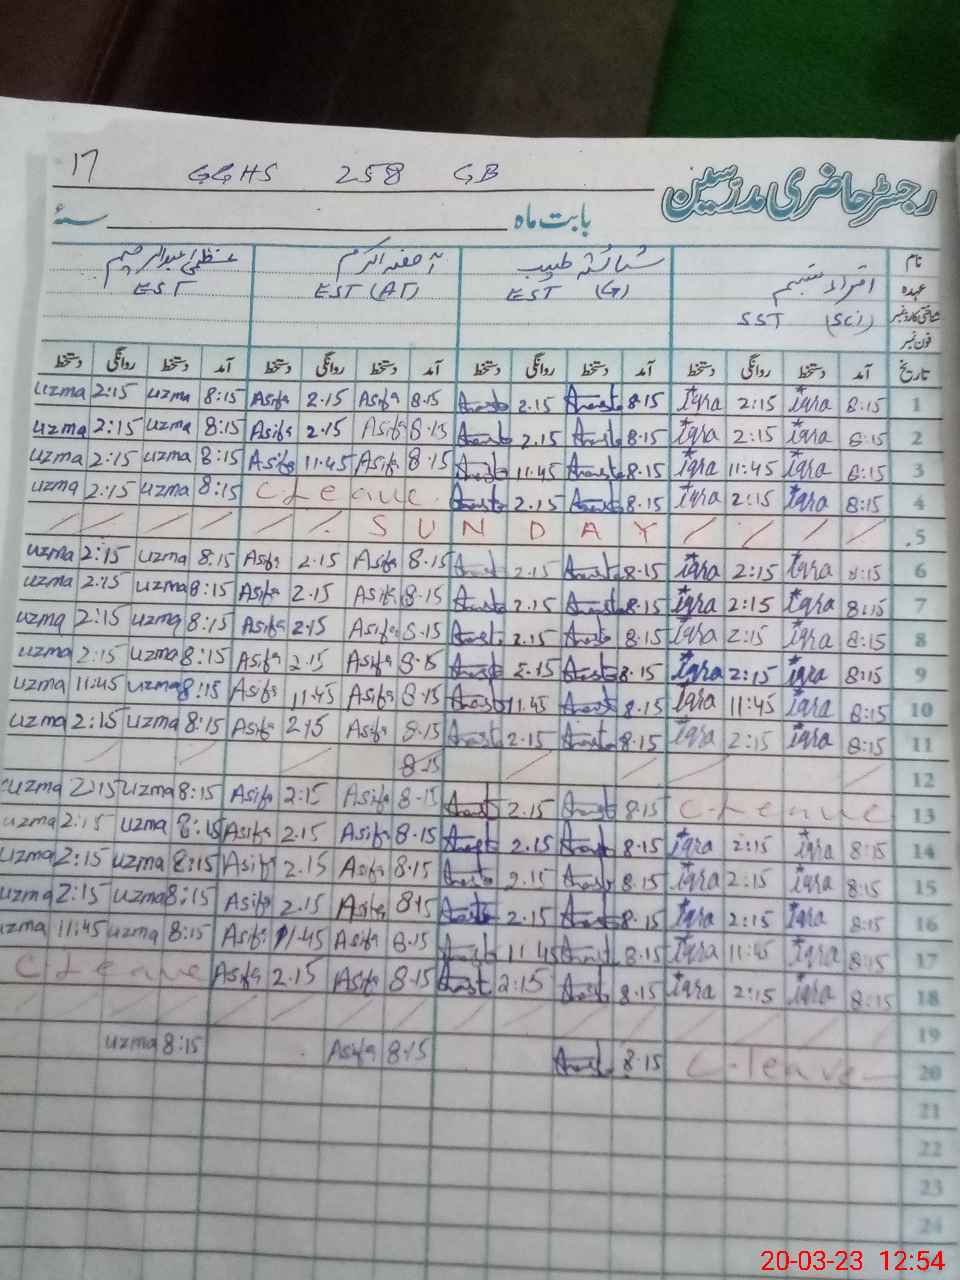 17 GGHS 258 GB رجسٹر حاضری مدرسین
بابت ماہ سنۂ
نام اقراء تبسم شائستہ طیب آصفہ اکرم عظمیٰ عبدالرحیم
عہدہ SST (Sci) EST (G) EST (AT) EST
شناختی کارڈ نمبر
فون نمبر
تاریخ آمد دستخط روانگی دستخط آمد دستخط روانگی دستخط آمد دستخط روانگی دستخط آمد دستخط روانگی دستخط
uzma 2:15 uzma 8:15 Asifa 2.15 Asifa 8.15 2.15 8.15 Iqra 2:15 Iqra 8:15 1
uzma 2:15 uzma 8:15 Asifa 2.15 Asifa 8.15 2.15 8.15 Iqra 2:15 Iqra 8:15 2
uzma 2:15 uzma 8:15 Asifa 11.45 Asifa 8.15 11.45 8.15 Iqra 11:45 Iqra 8:15 3
uzma 2:15 uzma 8:15 C-Leave 2.15 8.15 Iqra 2:15 Iqra 8:15 4
SUNDAY 5
uzma 2:15 uzma 8:15 Asifa 2.15 Asifa 8.15 2.15 8.15 Iqra 2:15 Iqra 8:15 6
uzma 2:15 uzma 8:15 Asifa 2.15 Asifa 8.15 2.15 8.15 Iqra 2:15 Iqra 8:15 7
uzma 2:15 uzma 8:15 Asifa 2.15 Asifa 8.15 2.15 8.15 Iqra 2:15 Iqra 8:15 8
uzma 2:15 uzma 8:15 Asifa 2.15 Asifa 8.15 2.15 8.15 Iqra 2:15 Iqra 8:15 9
uzma 11:45 uzma 8:15 Asifa 11.45 Asifa 8.15 11.45 8.15 Iqra 11:45 Iqra 8:15 10
uzma 2:15 uzma 8:15 Asifa 2.15 Asifa 8.15 2.15 8.15 Iqra 2:15 Iqra 8:15 11
8.15 12
uzma 2:15 uzma 8:15 Asifa 2.15 Asifa 8.15 2.15 8.15 C-Leave 13
uzma 2:15 uzma 8:15 Asifa 2.15 Asifa 8.15 2.15 8.15 Iqra 2:15 Iqra 8:15 14
uzma 2:15 uzma 8:15 Asifa 2.15 Asifa 8.15 2.15 8.15 Iqra 2:15 Iqra 8:15 15
uzma 2:15 uzma 8:15 Asifa 2.15 Asifa 8.15 2.15 8.15 Iqra 2:15 Iqra 8:15 16
uzma 11:45 uzma 8:15 Asifa 11.45 Asifa 8.15 11.45 8.15 Iqra 11:45 Iqra 8:15 17
C-Leave Asifa 2.15 Asifa 8.15 2:15 8.15 Iqra 2:15 Iqra 8:15 18
19
uzma 8:15 Asifa 8.15 8.15 C-leave 20
21
22
23
24
20-03-23 12:54